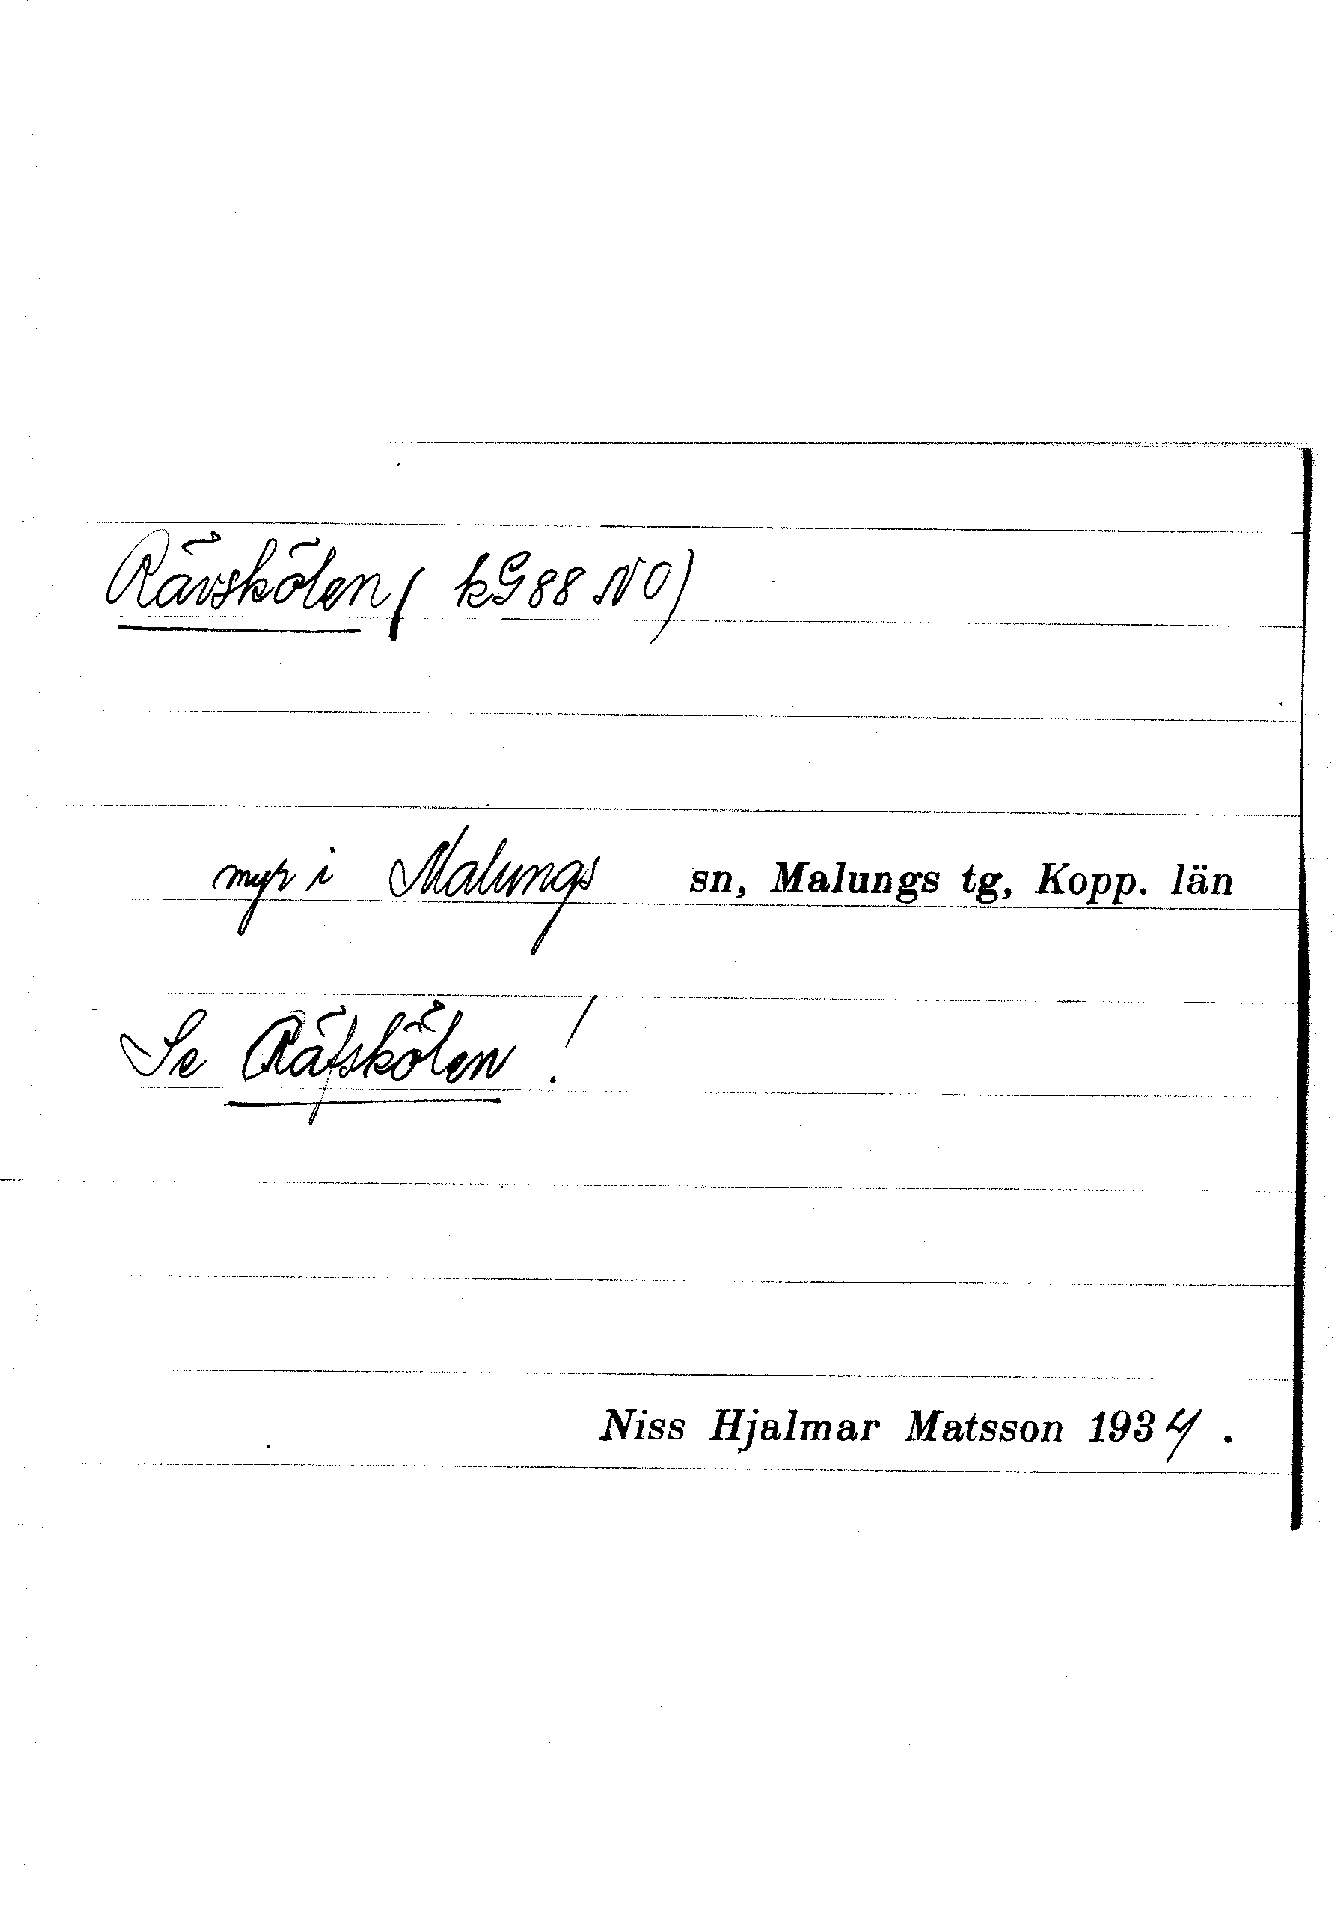 Rävskölen (kG88 NO)
myr i Malungs sn, Malungs tg, Kopp. län
Se Räfskölen!
Niss Hjalmar Matsson 1934.